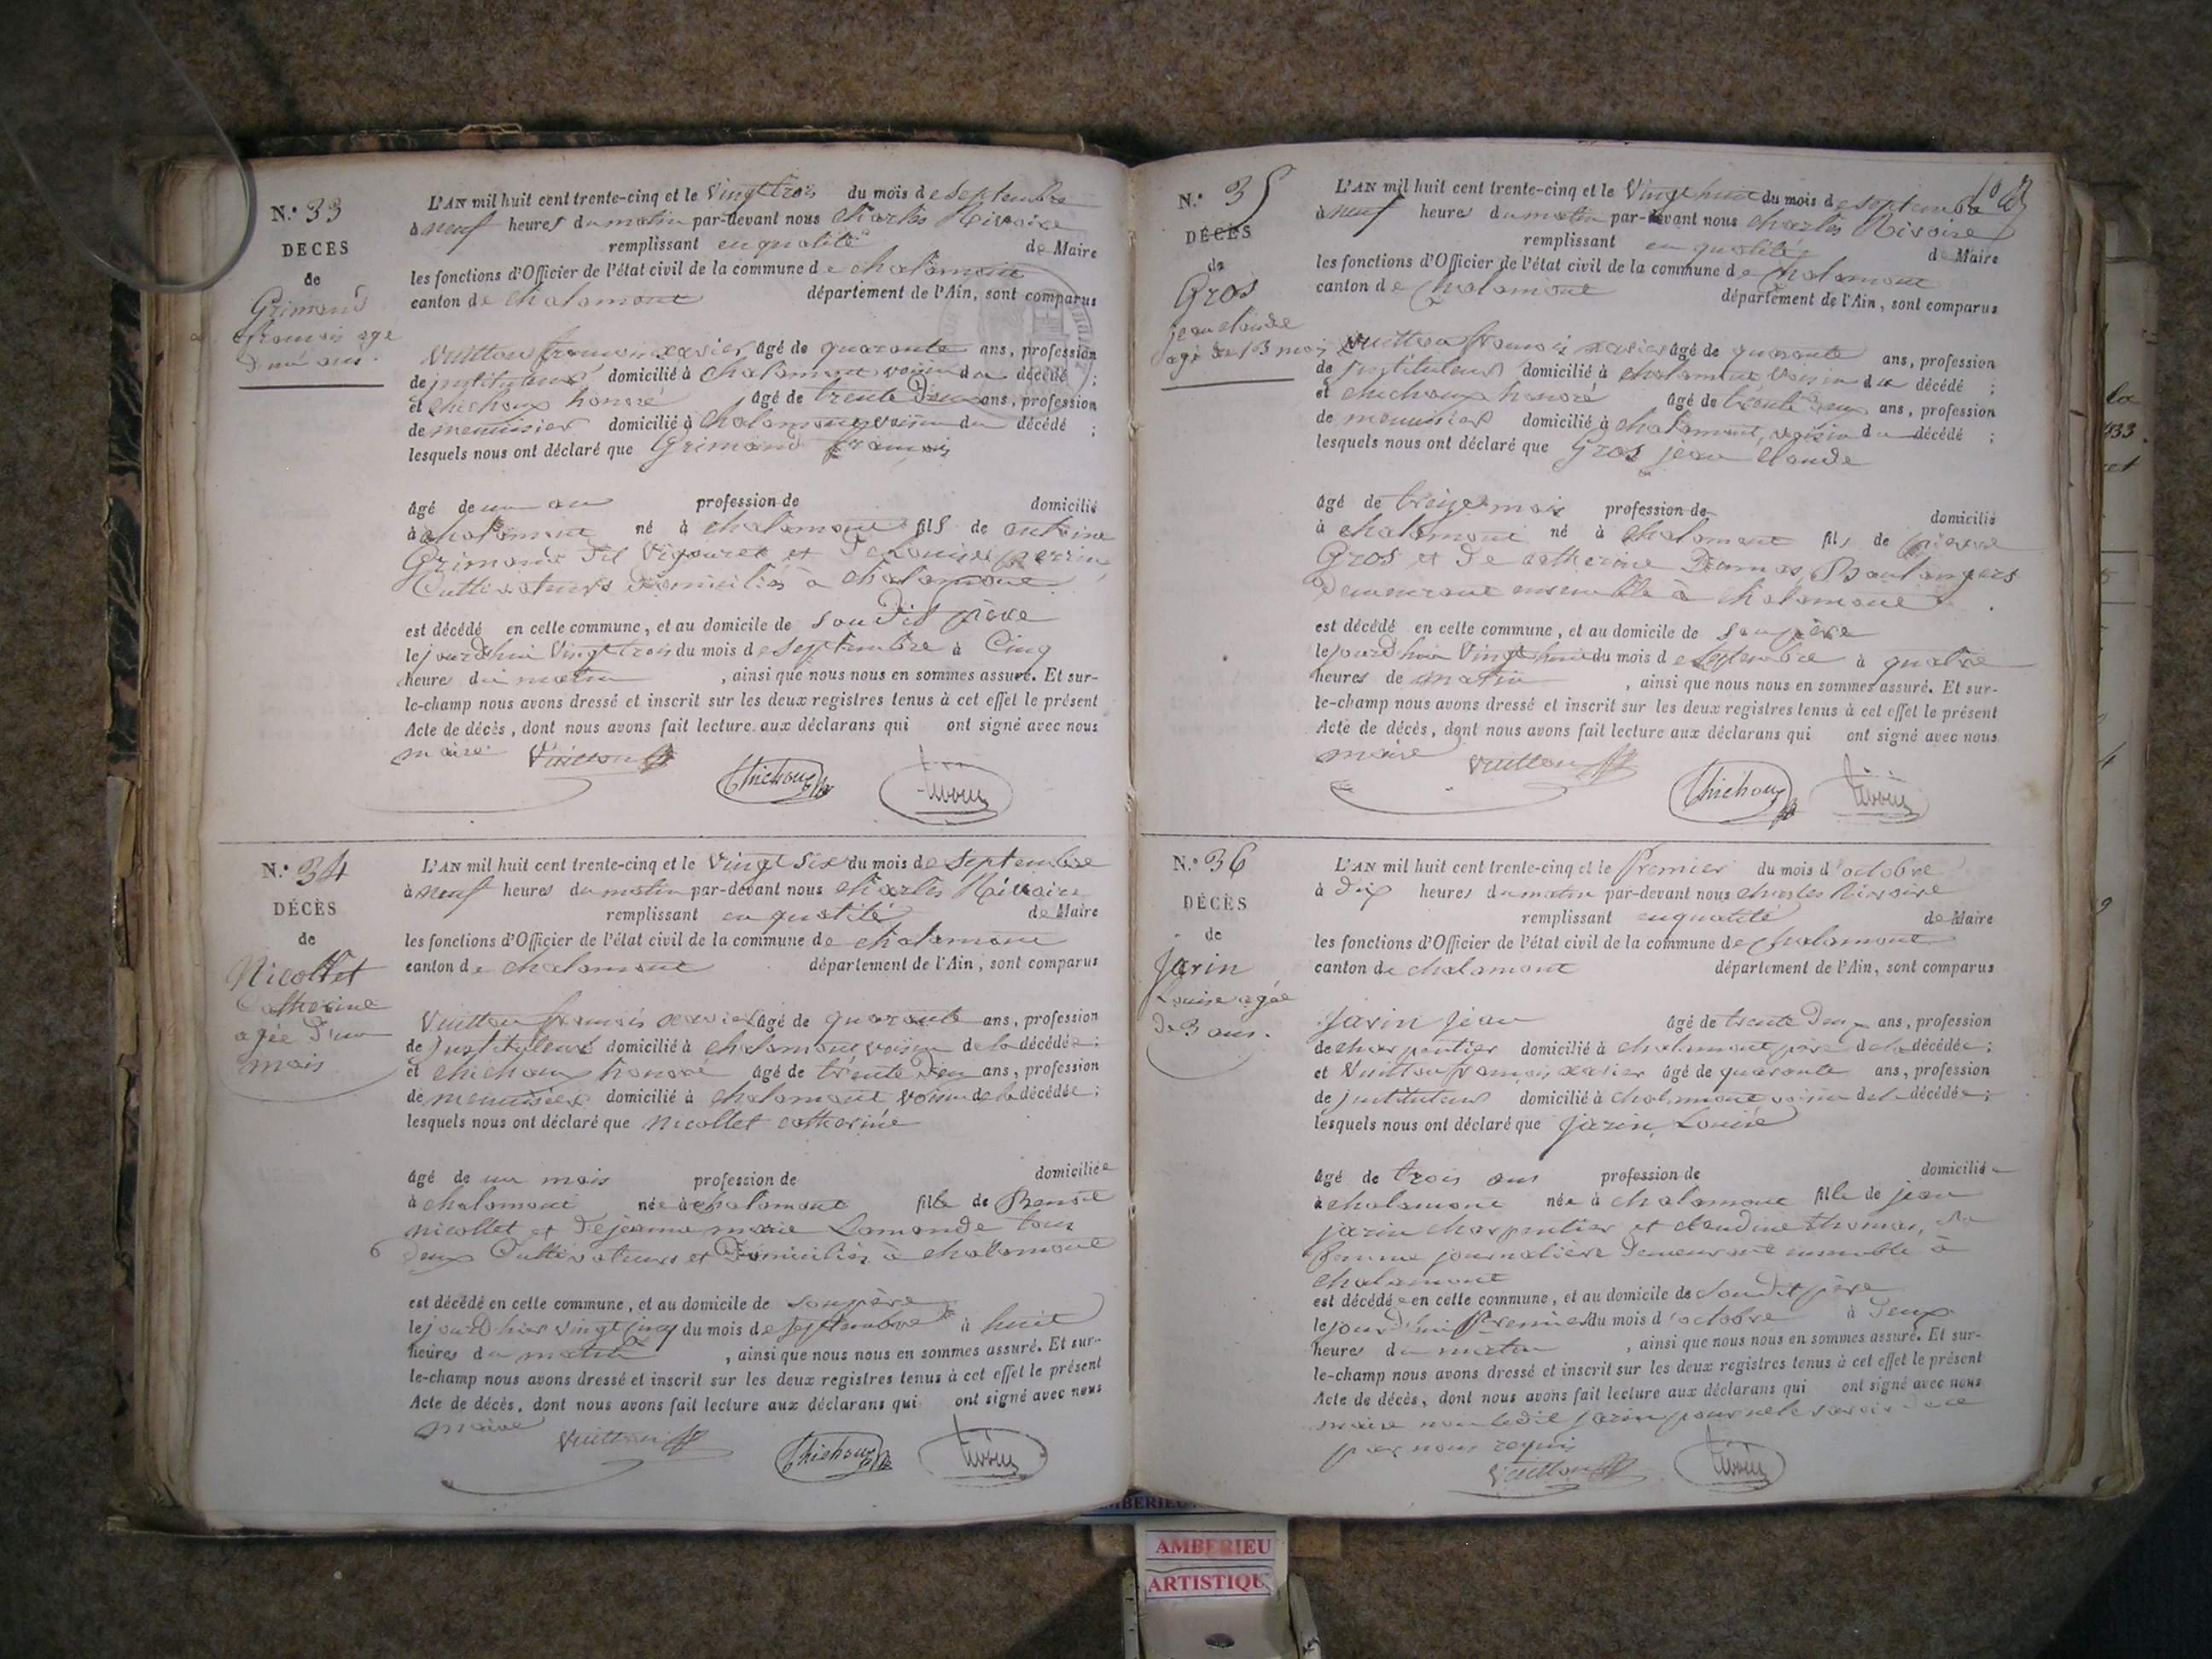 N.° 33
DÉCÈS
de
Grimand
francois age
d'un ans.
L'AN mil huit cent trente-cinq et le Vingt trois du mois de septembre
à neuf heures du matin par-devant nous charles Rivoire
remplissant en qualité de Maire
les fonctions d'Officier de l'état civil de la commune de chalamont
canton de chalamont département de l'Ain, sont comparus
Vuitton francois xavier âgé de quarante ans, profession
de instituteur domicilié à chalamont voisin du décédé ;
et chichoux honoré âgé de trente deux ans, profession
de menuisier domicilié à chalamont voisin du décédé ;
lesquels nous ont déclaré que Grimand francois
âgé de un an profession de domicilié
à chalamont né à chalamont fils de antoine
Grimand dit Vigouret et de Louise perrin
Cultivateurs domiciliés à chalamont
est décédé en cette commune, et au domicile de son dit père
le jourd'hui Vingt trois du mois de septembre à Cinq
heures du matin , ainsi que nous nous en sommes assuré. Et sur-
le-champ nous avons dressé et inscrit sur les deux registres tenus à cet effet le présent
Acte de décès, dont nous avons fait lecture aux déclarans qui ont signé avec nous
maire Vuitton Chichoux Rivoire
N.° 34
DÉCÈS
de
Nicollet
Catherine
agée d'un
mois
L'AN mil huit cent trente-cinq et le Vingt six du mois de septembre
à neuf heures du matin par-devant nous charles Rivoire
remplissant en qualité de Maire
les fonctions d'Officier de l'état civil de la commune de chalamont
canton de chalamont département de l'Ain, sont comparus
Vuitton francois xavier âgé de quarante ans, profession
de Instituteur domicilié à chalamont voisin de la décédée ;
et chichoux honoré âgé de trente deux ans, profession
de menuisier domicilié à chalamont voisin de la décédée ;
lesquels nous ont déclaré que nicollet catherine
âgé de un mois profession de domiciliée
à chalamont née à chalamont fille de Benoit
nicollet et de jeanne marie Lamande tous
deux Cultivateurs et domiciliés à chalamont
est décédé en cette commune, et au domicile de son père
le jourd'hier vingt cinq du mois de septembre à huit
heures du matin , ainsi que nous nous en sommes assuré. Et sur-
le-champ nous avons dressé et inscrit sur les deux registres tenus à cet effet le présent
Acte de décès, dont nous avons fait lecture aux déclarans qui ont signé avec nous
maire Vuitton Chichoux Rivoire
N.° 35
DÉCÈS
de
Gros
jean claude
agé de 13 mois
L'AN mil huit cent trente-cinq et le Vingt huit du mois de septembre
à neuf heures du matin par-devant nous charles Rivoire
remplissant en qualité de Maire
les fonctions d'Officier de l'état civil de la commune de chalamont
canton de Chalamont département de l'Ain, sont comparus
Vuitton francois xavier âgé de quarante ans, profession
de Instituteur domicilié à chalamont voisin du décédé ;
et chichoux honoré âgé de trente deux ans, profession
de menuisier domicilié à chalamont, voisin du décédé ;
lesquels nous ont déclaré que Gros jean claude
âgé de treize mois profession de domicilié
à chalamont né à chalamont fils de pierre
Gros et de catherine Damas, Boulangers
demeurant ensemble à chalamont.
est décédé en cette commune, et au domicile de son père
le jourd'hui Vingt huit du mois de septembre à quatre
heures de matin , ainsi que nous nous en sommes assuré. Et sur-
le-champ nous avons dressé et inscrit sur les deux registres tenus à cet effet le présent
Acte de décès, dont nous avons fait lecture aux déclarans qui ont signé avec nous
maire Vuitton Chichoux Rivoire
N.° 36
DÉCÈS
de
Jarin
Louise agée
de 3 ans.
L'AN mil huit cent trente-cinq et le Premier du mois d'octobre
à dix heures du matin par-devant nous charles Rivoire
remplissant en qualité de Maire
les fonctions d'Officier de l'état civil de la commune de chalamont
canton de chalamont département de l'Ain, sont comparus
Jarin jean âgé de trente deux ans, profession
de charpentier domicilié à chalamont père de la décédée ;
et Vuitton francois xavier âgé de quarante ans, profession
de instituteur domicilié à chalamont voisin de la décédée ;
lesquels nous ont déclaré que Jarin Louise
âgé de trois ans profession de domiciliée
à chalamont née à chalamont fille de jean
jarin charpentier et claudine thomas, sa
femme journalière demeurant ensemble à
chalamont
est décédée en cette commune, et au domicile de son dit père
le jour d'hui Premier du mois d'octobre à deux
heures du matin , ainsi que nous nous en sommes assuré. Et sur-
le-champ nous avons dressé et inscrit sur les deux registres tenus à cet effet le présent
Acte de décès, dont nous avons fait lecture aux déclarans qui ont signé avec nous
maire non ledit jarin pour ne le savoir de ce
par nous requis
Vuitton Rivoire
AMBERIEU
ARTISTIQUE